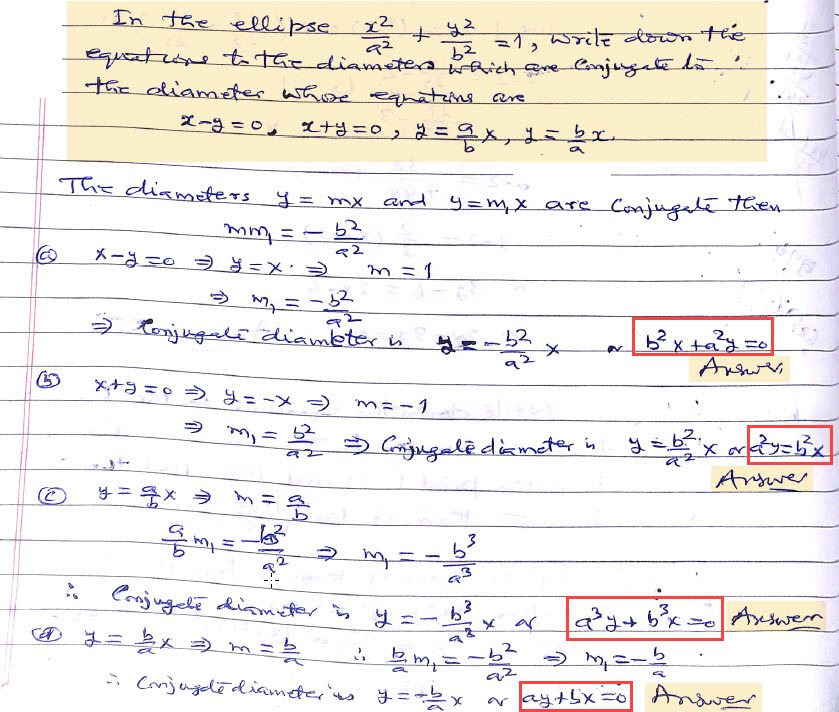 In the ellipse x²/a² + y²/b² = 1, write down the
equations to the diameters which are Conjugate to
the diameter whose equations are
x-y=0, x+y=0, y = a/b x, y = b/a x.
The diameters y = mx and y = m₁x are Conjugate then
mm₁ = - b²/a²
(a) x-y=0 ⇒ y=x ⇒ m = 1
⇒ m₁ = -b²/a²
⇒ Conjugate diameter is y = -b²/a² x or b²x+a²y=0
Answer
(b) x+y=0 ⇒ y=-x ⇒ m=-1
⇒ m₁ = b²/a² ⇒ Conjugate diameter is y = b²/a² x or a²y=b²x
Answer
(c) y = a/b x ⇒ m = a/b
a/b m₁ = -b²/a² ⇒ m₁ = - b³/a³
∴ Conjugate diameter is y = - b³/a³ x or a³y + b³x = 0 Answer
(d) y = b/a x ⇒ m = b/a ∴ b/a m₁ = -b²/a² ⇒ m₁ = -b/a
∴ Conjugate diameter is y = -b/a x or ay+bx=0 Answer